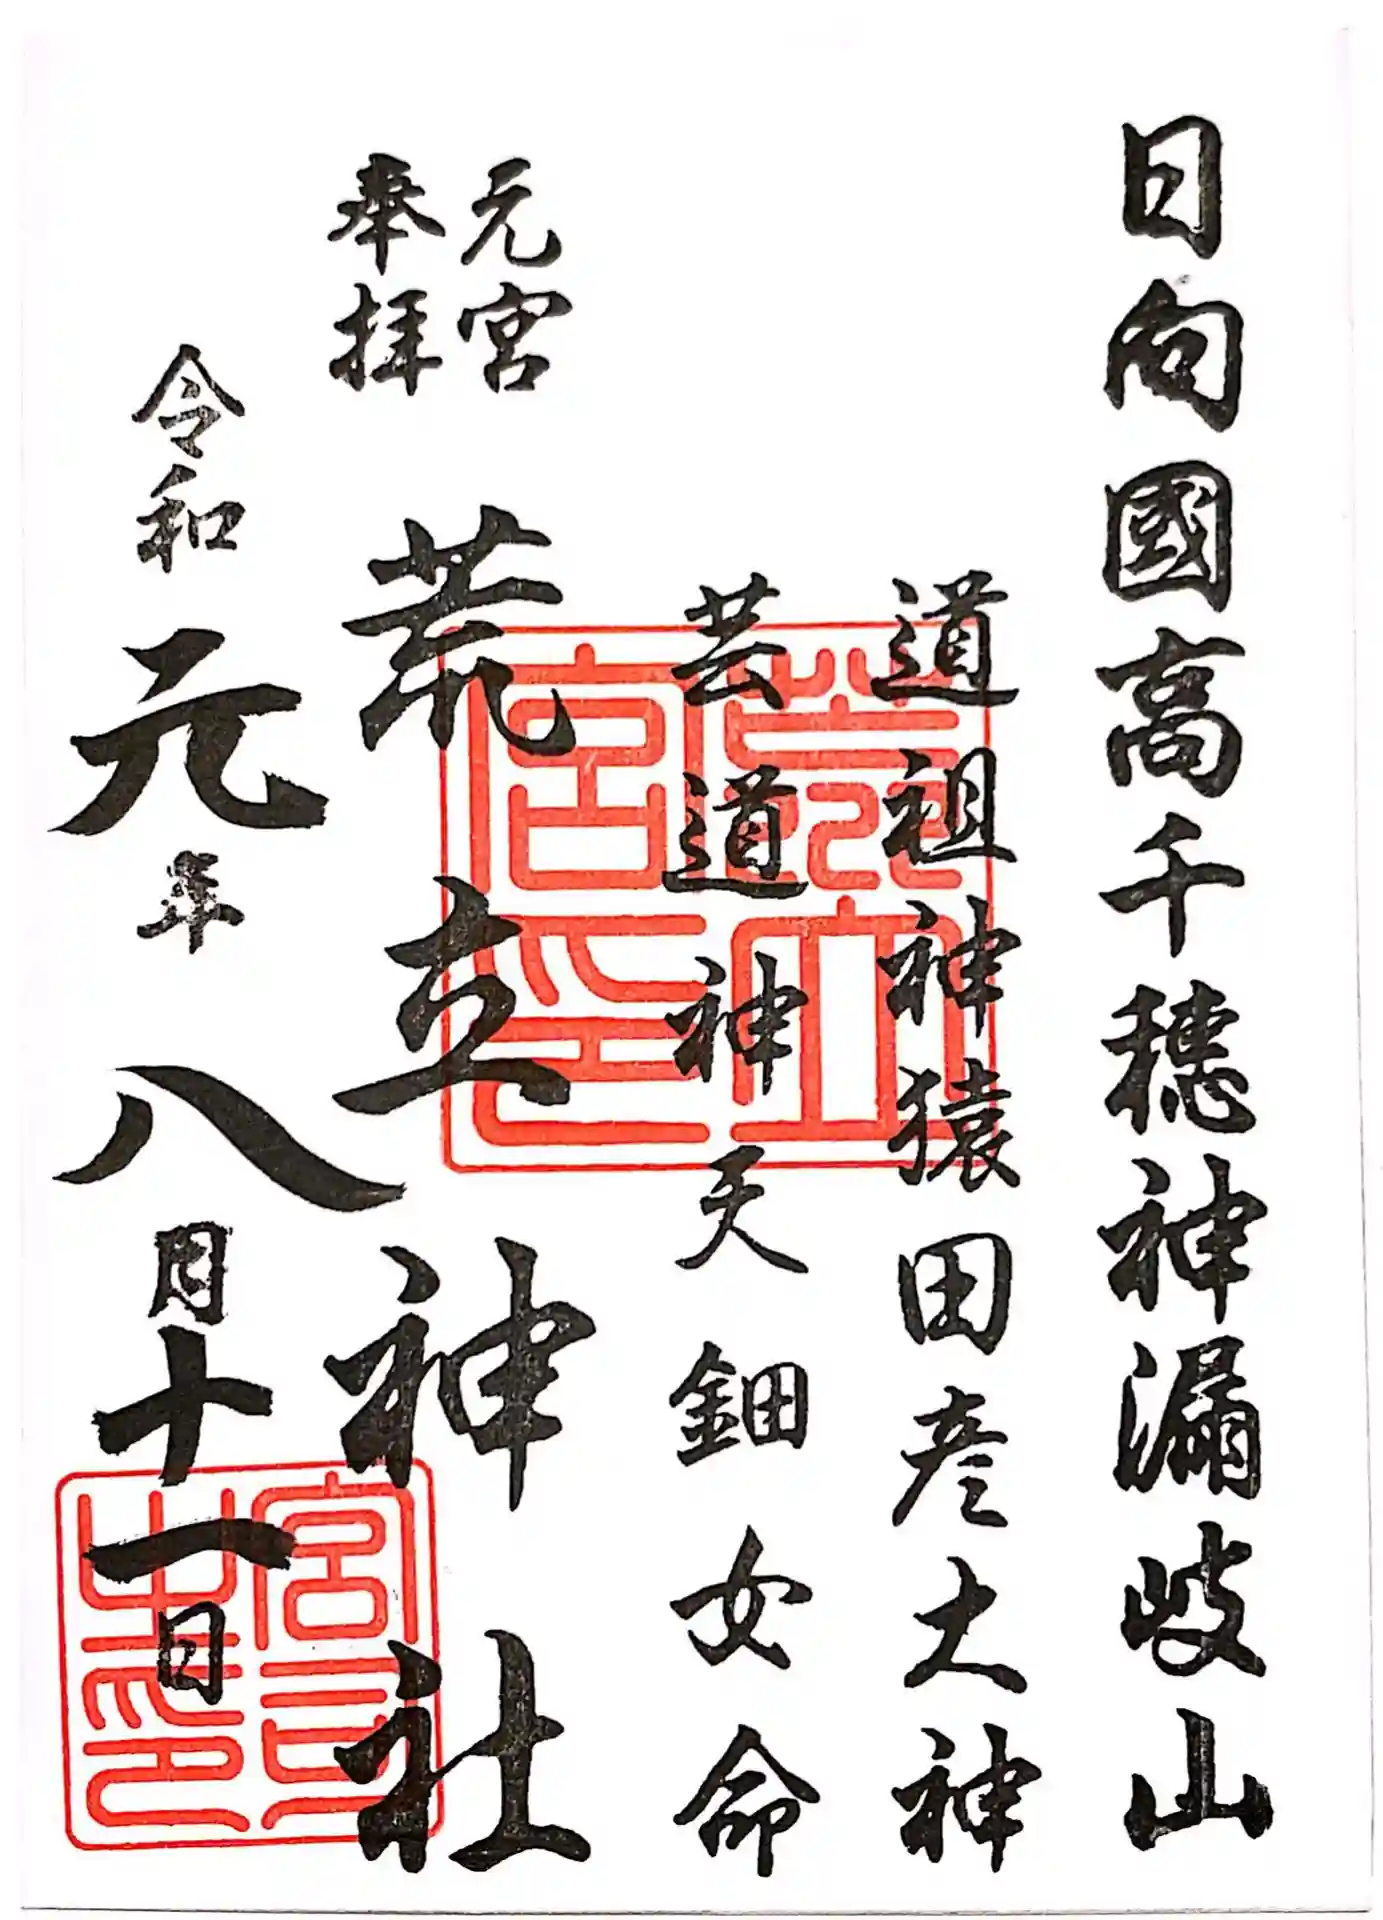 日向國高千穂神漏岐山
道祖神猿田彦大神
芸道神天鈿女命
元宮
奉拝
荒立神社
令和元年八月十一日
荒立宮印
宮司之印